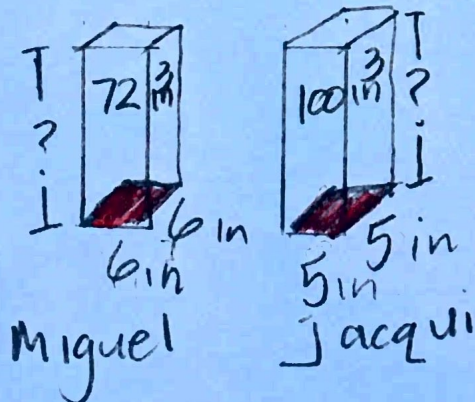 72 in³
?
6 in
6 in
Miguel
100 in³
?
5 in
5 in
jacqui